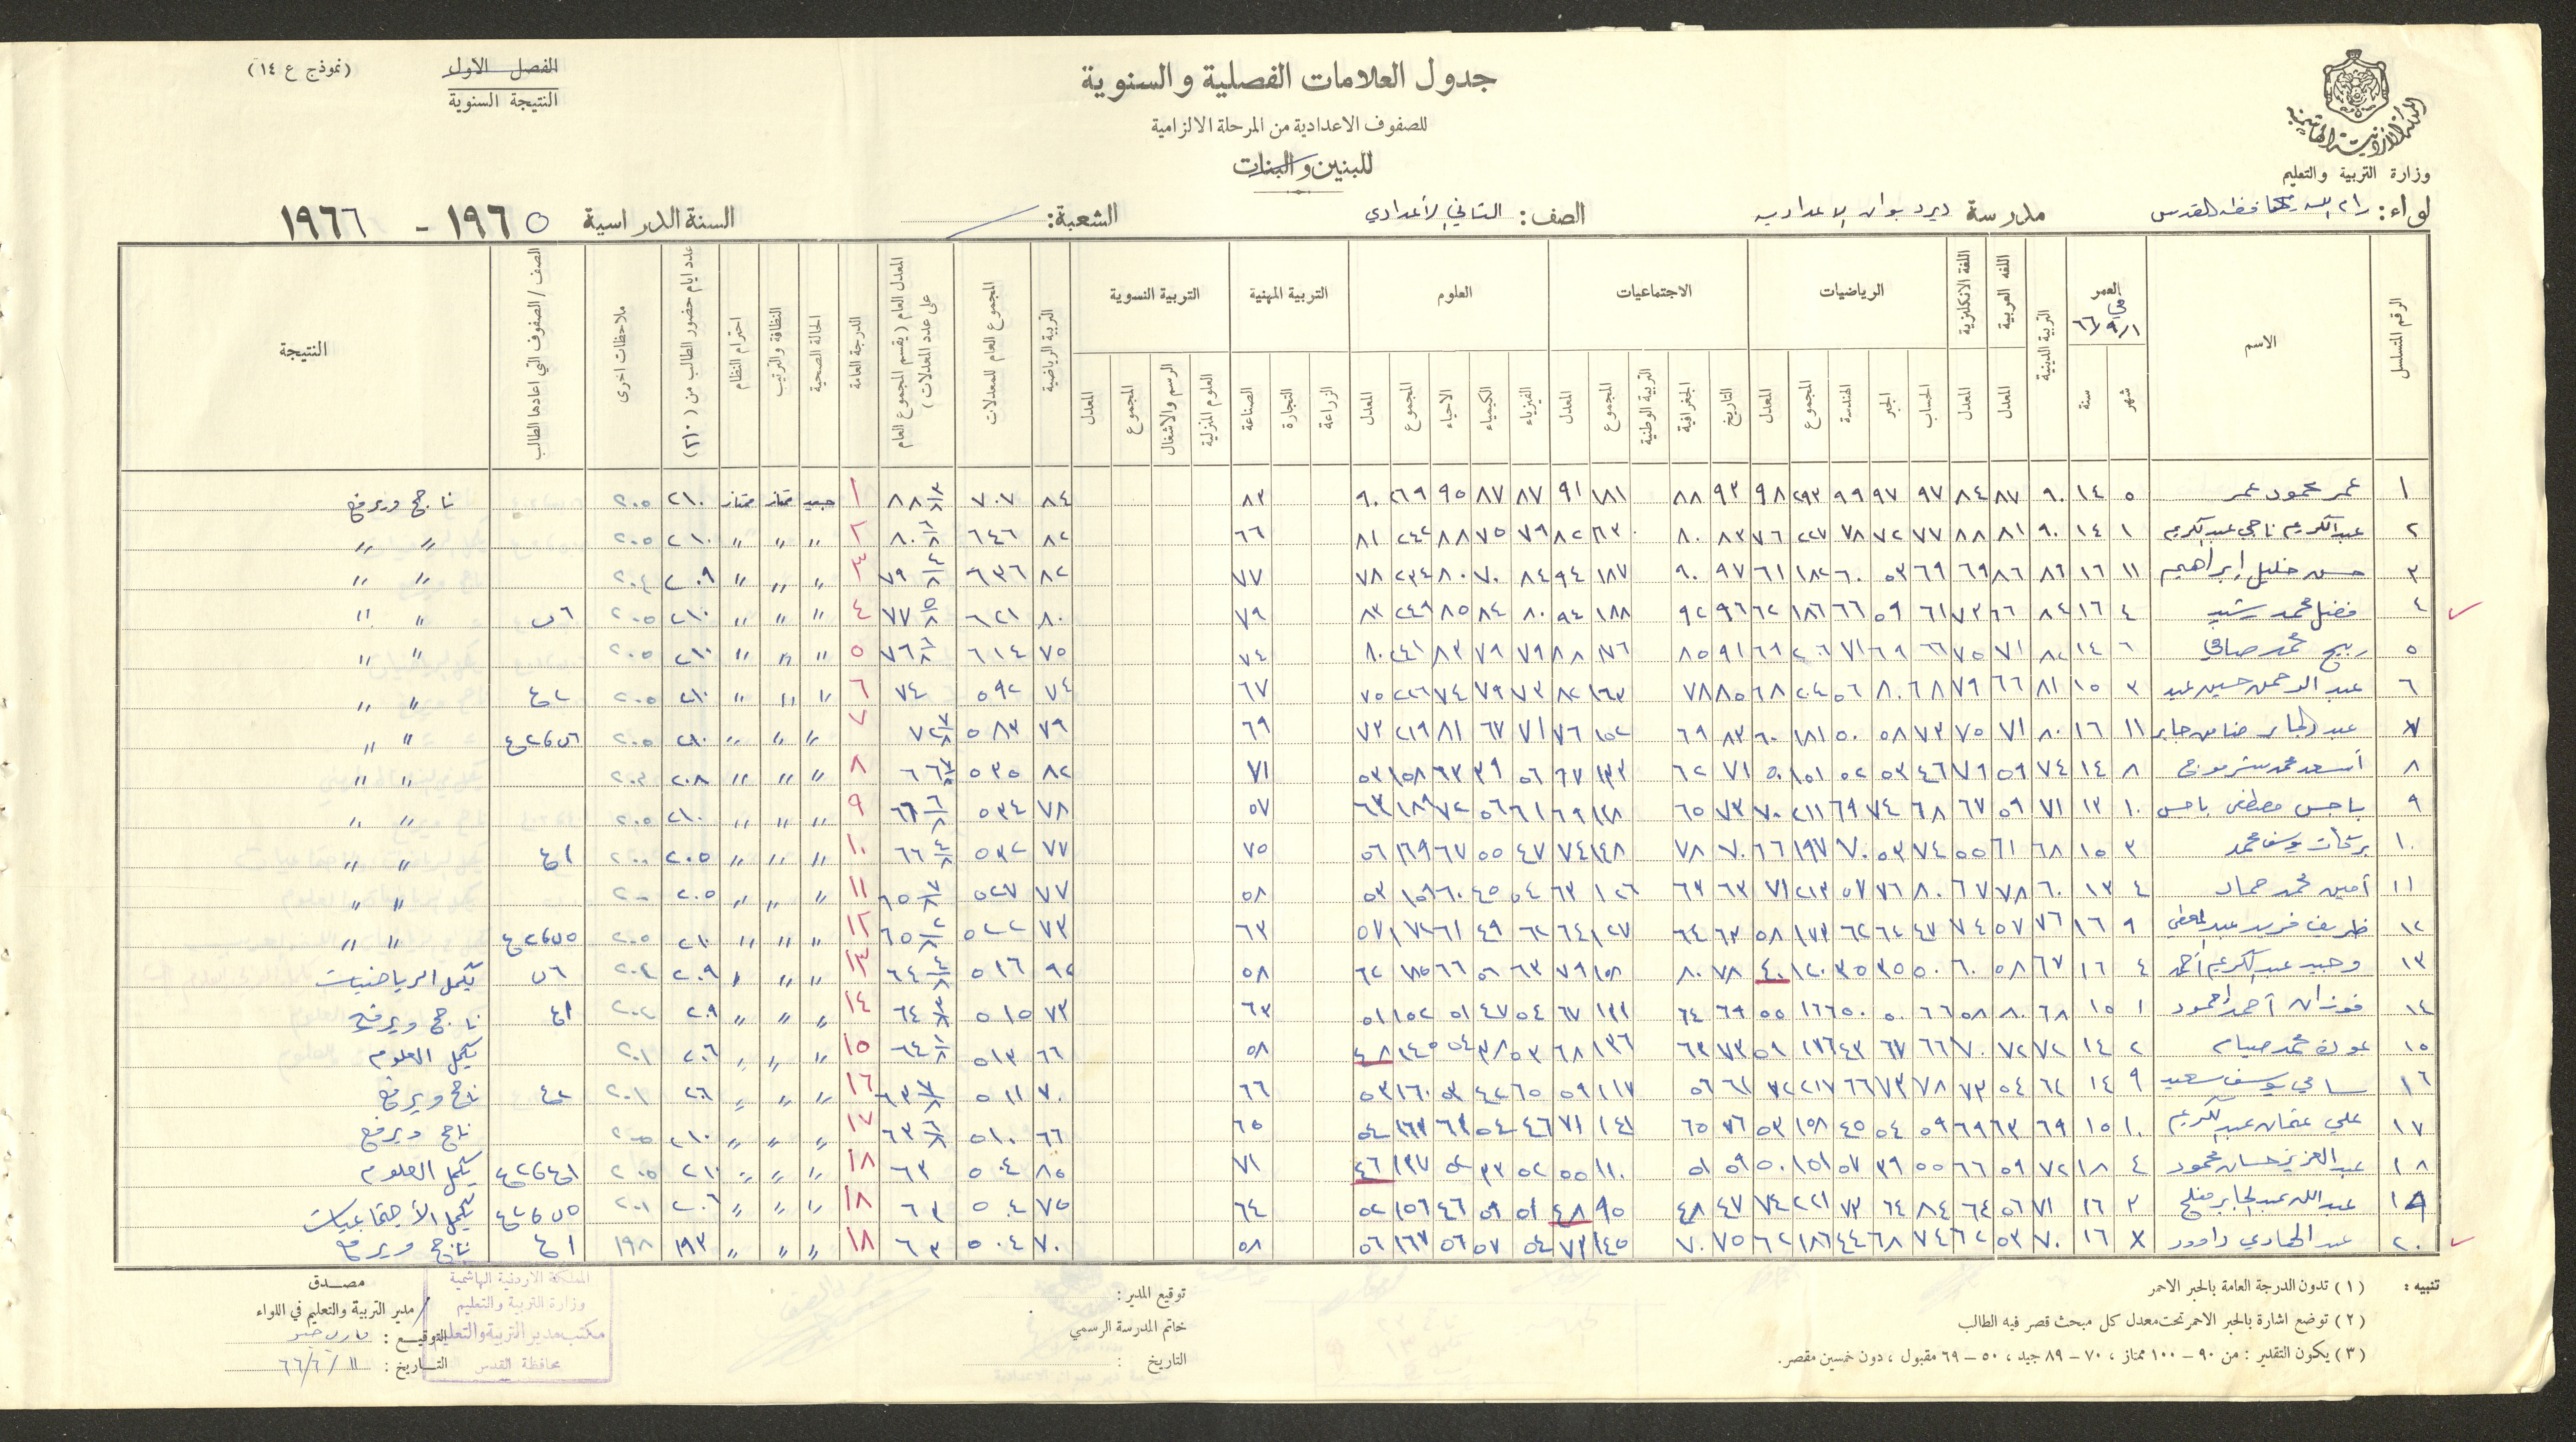 (نموذج ع ١٤)
الفصل الاول
النتيجة السنوية
جدول العلامات الفصلية والسنوية
للصفوف الاعدادية من المرحلة الالزامية
للبنين والبنات
المملكة الاردنية الهاشمية
وزارة التربية والتعليم
لواء: رام الله محافظة القدس مدرسة ديردبوان الاعدادية الصف: الثاني الأعدادي الشعبة: السنة الدراسية ١٩٦٥ - ١٩٦٦
الرقم المتسلسل الاسم العمر شهر سنة التربية الدينية اللغة العربية المعدل اللغة الانكليزية المعدل الرياضيات الحساب الجبر الهندسة المجموع المعدل الاجتماعيات التاريخ الجغرافية التربية الوطنية المجموع المعدل العلوم الفيزياء الكيمياء الاحياء المجموع المعدل التربية المهنية الزراعة التجارة الصناعة التربية النسوية العلوم المنزلية الرسم والاشغال المجموع المعدل التربية الرياضية المجموع العام للمعدلات المعدل العام (يقسم المجموع العام على عدد المعدلات) الدرجة العامة الحالة الصحية النظافة والترتيب احترام النظام عدد ايام حضور الطالب من (٢١٠) ملاحظات اخرى الصف / الصفوف التي اعادها الطالب النتيجة
١ عمر محمود عمر ٥ ١٤ ٩٠ ٨٧ ٨٤ ٩٧ ٩٧ ٩٩ ٢٩٣ ٩٨ ٩٣ ٨٨ ١٨١ ٩١ ٨٧ ٨٧ ٩٥ ٢٦٩ ٩٠ ٨٣ ٨٤ ٧٠٧ ٨٨ ٣/٨ ١ جيد ممتاز ممتاز ٢١٠ ٢٠٥ ناجح ويرفع
٢ عبدالكريم ناجي عبدالكريم ١ ١٤ ٩٠ ٨١ ٨٨ ٧٧ ٧٢ ٧٨ ٢٢٧ ٧٦ ٨٣ ٨٠ ١٦٣ ٨٢ ٧٩ ٧٥ ٨٨ ٢٤٢ ٨١ ٦٦ ٨٢ ٦٤٦ ٨٠ ٦/٨ ٢ " " " ٢١٠ ٢٠٥ " "
٣ حسن خليل ابراهيم ١١ ١٦ ٨٦ ٨٦ ٦٩ ٦٩ ٥٣ ٦٠ ١٨٢ ٦١ ٩٧ ٩٠ ١٨٧ ٩٤ ٨٤ ٧٠ ٨٠ ٢٣٤ ٧٨ ٧٧ ٨٢ ٦٣٦ ٧٩ ٤/٨ ٣ " " " ٢٠٩ ٢٠٤ " "
٤ فضل محمد رشيد ٤ ١٦ ٨٤ ٦٦ ٧٣ ٦١ ٥٩ ٦٦ ١٨٦ ٦٢ ٩٦ ٩٢ ١٨٨ ٩٤ ٨٠ ٨٤ ٨٥ ٢٤٩ ٨٣ ٧٩ ٨٠ ٦٢١ ٧٧ ٥/٨ ٤ " " " ٢١٠ ٢٠٥ ٦س " "
٥ ربيح محمد صافي ٦ ١٤ ٨٢ ٧١ ٧٥ ٦٦ ٦٩ ٧١ ٢٠٦ ٦٩ ٩١ ٨٥ ١٧٦ ٨٨ ٧٩ ٧٩ ٨٣ ٢٤١ ٨٠ ٧٤ ٧٥ ٦١٤ ٧٦ ٦/٨ ٥ " " " ٢١٠ ٢٠٥ " "
٦ عبد الرحمن حسين عيد ٣ ١٥ ٨١ ٦٦ ٧٩ ٦٨ ٨٠ ٥٦ ٢٠٤ ٦٨ ٨٥ ٧٨ ١٦٣ ٨٢ ٧٣ ٧٩ ٧٤ ٢٢٦ ٧٥ ٦٧ ٧٤ ٥٩٢ ٧٤ ٦ " " " ٢١٠ ٢٠٥ ٢ع " "
٧ عبد الجابر ضامن جابر ١١ ١٦ ٨٠ ٧١ ٧٥ ٧٣ ٥٨ ٥٠ ١٨١ ٦٠ ٨٣ ٦٩ ١٥٢ ٧٦ ٧١ ٦٧ ٨١ ٢١٩ ٧٣ ٦٩ ٧٩ ٥٨٣ ٧٢ ٧/٨ ٧ " " " ٢١٠ ٢٠٥ ٦س و٢ع " "
٨ أسعد محمد ٨ ١٤ ٧٤ ٥٩ ٧٩ ٤٦ ٥٣ ٥٢ ١٥١ ٥٠ ٧١ ٦٢ ١٣٣ ٦٧ ٥٦ ٣٩ ٦٣ ١٥٨ ٥٣ ٧١ ٨٢ ٥٣٥ ٦٦ ٧/٨ ٨ " " " ٢٠٨ ٢٠٣ " "
٩ باجس مصطفى باجس ١٠ ١٣ ٧١ ٥٩ ٦٧ ٦٨ ٧٤ ٦٩ ٢١١ ٧٠ ٧٣ ٦٥ ١٣٨ ٦٩ ٦١ ٥٦ ٧٢ ١٨٩ ٦٣ ٥٧ ٧٨ ٥٣٤ ٦٦ ٦/٨ ٩ " " " ٢١٠ ٢٠٥ " "
١٠ بركات يوسف محمد ٣ ١٥ ٦٨ ٦١ ٥٥ ٧٤ ٥٣ ٧٠ ١٩٧ ٦٦ ٧٠ ٧٨ ١٤٨ ٧٤ ٤٧ ٥٥ ٦٧ ١٦٩ ٥٦ ٧٥ ٧٧ ٥٣٢ ٦٦ ٤/٨ ١٠ " " " ٢٠٥ ٢٠٠ ١ع " "
١١ أمين محمد حماد ٤ ١٣ ٦٠ ٧٨ ٦٧ ٨٠ ٧٦ ٥٧ ٢١٣ ٧١ ٦٣ ٦٣ ١٢٦ ٦٣ ٥٤ ٤٥ ٦٠ ١٥٩ ٥٣ ٥٨ ٧٧ ٥٢٧ ٦٥ ٧/٨ ١١ " " " ٢٠٥ ٢٠٠ " "
١٢ ظريف فريد عبد المعطي ٩ ١٦ ٧٦ ٥٧ ٧٤ ٤٧ ٦٤ ٦٢ ١٧٣ ٥٨ ٦٣ ٦٤ ١٢٧ ٦٤ ٦٢ ٤٩ ٦١ ١٧٢ ٥٧ ٦٣ ٧٣ ٥٢٢ ٦٥ ٢/٨ ١٢ " " " ٢١٠ ٢٠٥ ٥س و٢ع " "
١٣ وحيد عبد الكريم أحمد ٤ ١٦ ٦٧ ٥٨ ٦٠ ٥٠ ٣٥ ٣٥ ١٢٠ ٤٠ ٧٨ ٨٠ ١٥٨ ٧٩ ٦٣ ٥٦ ٦٦ ١٨٥ ٦٢ ٥٨ ٩٢ ٥١٦ ٦٤ ٤/٨ ١٣ " " " ٢٠٩ ٢٠٤ ٦س يكمل الرياضيات
١٤ فوزان أحمد احمود ١ ١٥ ٦٨ ٨٠ ٥٨ ٦٦ ٥٠ ٥٠ ١٦٦ ٥٥ ٦٩ ٦٤ ١٣٣ ٦٧ ٥٤ ٤٧ ٥١ ١٥٢ ٥١ ٦٣ ٧٣ ٥١٥ ٦٤ ٣/٨ ١٤ " " " ٢٠٩ ٢٠٢ ١ع ناجح ويرفع
١٥ عودة محمد صيام ٢ ١٤ ٧٢ ٧٢ ٧٠ ٦٦ ٦٧ ٤٣ ١٧٦ ٥٩ ٧٣ ٦٣ ١٣٦ ٦٨ ٥٣ ٣٨ ٥٤ ١٤٥ ٤٨ ٥٨ ٦٦ ٥١٣ ٦٤ ١/٨ ١٥ " " " ٢٠٦ ٢٠١ يكمل العلوم
١٦ سامي يوسف سعيد ٩ ١٤ ٦٢ ٥٤ ٧٣ ٧٨ ٧٣ ٦٦ ٢١٧ ٧٢ ٦١ ٥٦ ١١٧ ٥٩ ٦٥ ٤٢ ٥٣ ١٦٠ ٥٣ ٦٦ ٧٠ ٥١١ ٦٣ ٧/٨ ١٦ " " " ٢٠٦ ٢٠١ ٢ع ناجح ويرفع
١٧ علي عثمان عبد الكريم ١٠ ١٥ ٦٩ ٦٣ ٦٩ ٥٩ ٥٤ ٤٥ ١٥٨ ٥٣ ٧٦ ٦٥ ١٤١ ٧١ ٤٦ ٥٤ ٦٣ ١٦٣ ٥٤ ٦٥ ٦٦ ٥١٠ ٦٣ ٦/٨ ١٧ " " " ٢١٠ ٢٠٥ ناجح ويرفع
١٨ عبد العزيز حسان محمود ٤ ١٨ ٧٢ ٥٩ ٦٦ ٥٥ ٣٩ ٥٧ ١٥١ ٥٠ ٥٩ ٥١ ١١٠ ٥٥ ٥٢ ٣٣ ٥٢ ١٣٧ ٤٦ ٧١ ٨٥ ٥٠٤ ٦٣ ١٨ " " " ٢١٠ ٢٠٥ ١ع و٢ع يكمل العلوم
١٩ عبد الله عبد الجابر مفلح ٣ ١٦ ٧١ ٥٦ ٦٤ ٨٤ ٦٤ ٧٣ ٢٢١ ٧٤ ٤٧ ٤٨ ٩٥ ٤٨ ٥١ ٥٩ ٤٦ ١٥٦ ٥٢ ٦٤ ٧٥ ٥٠٤ ٦٣ ١٨ " " " ٢٠٦ ٢٠١ ٥س و٢ع يكمل الأجتماعيات
٢٠ عبد الهادي داوود ١٦ ٧٠ ٥٣ ٦٢ ٧٤ ٦٨ ٤٤ ١٨٦ ٦٢ ٧٥ ٧٠ ١٤٥ ٧٣ ٥٤ ٥٧ ٥٦ ١٦٧ ٥٦ ٥٨ ٧٠ ٥٠٤ ٦٣ ١٨ " " " ١٩٣ ١٩٨ ١ع ناجح ويرفع
تنبيه : (١) تدون الدرجة العامة بالحبر الاحمر
(٢) توضع اشارة بالحبر الاحمر تحت معدل كل مبحث قصر فيه الطالب
(٣) يكون التقدير : من ٩٠ - ١٠٠ ممتاز ، ٧٠ - ٨٩ جيد ، ٥٠ - ٦٩ مقبول ، دون خمسين مقصر.
توقيع المدير :
خاتم المدرسة الرسمي
التاريخ :
المملكة الاردنية الهاشمية
وزارة التربية والتعليم
مكتب مدير التربية والتعليم
محافظة القدس
مصدق
مدير التربية والتعليم في اللواء
التوقيع :
التاريخ : ١١/٦/٦٦